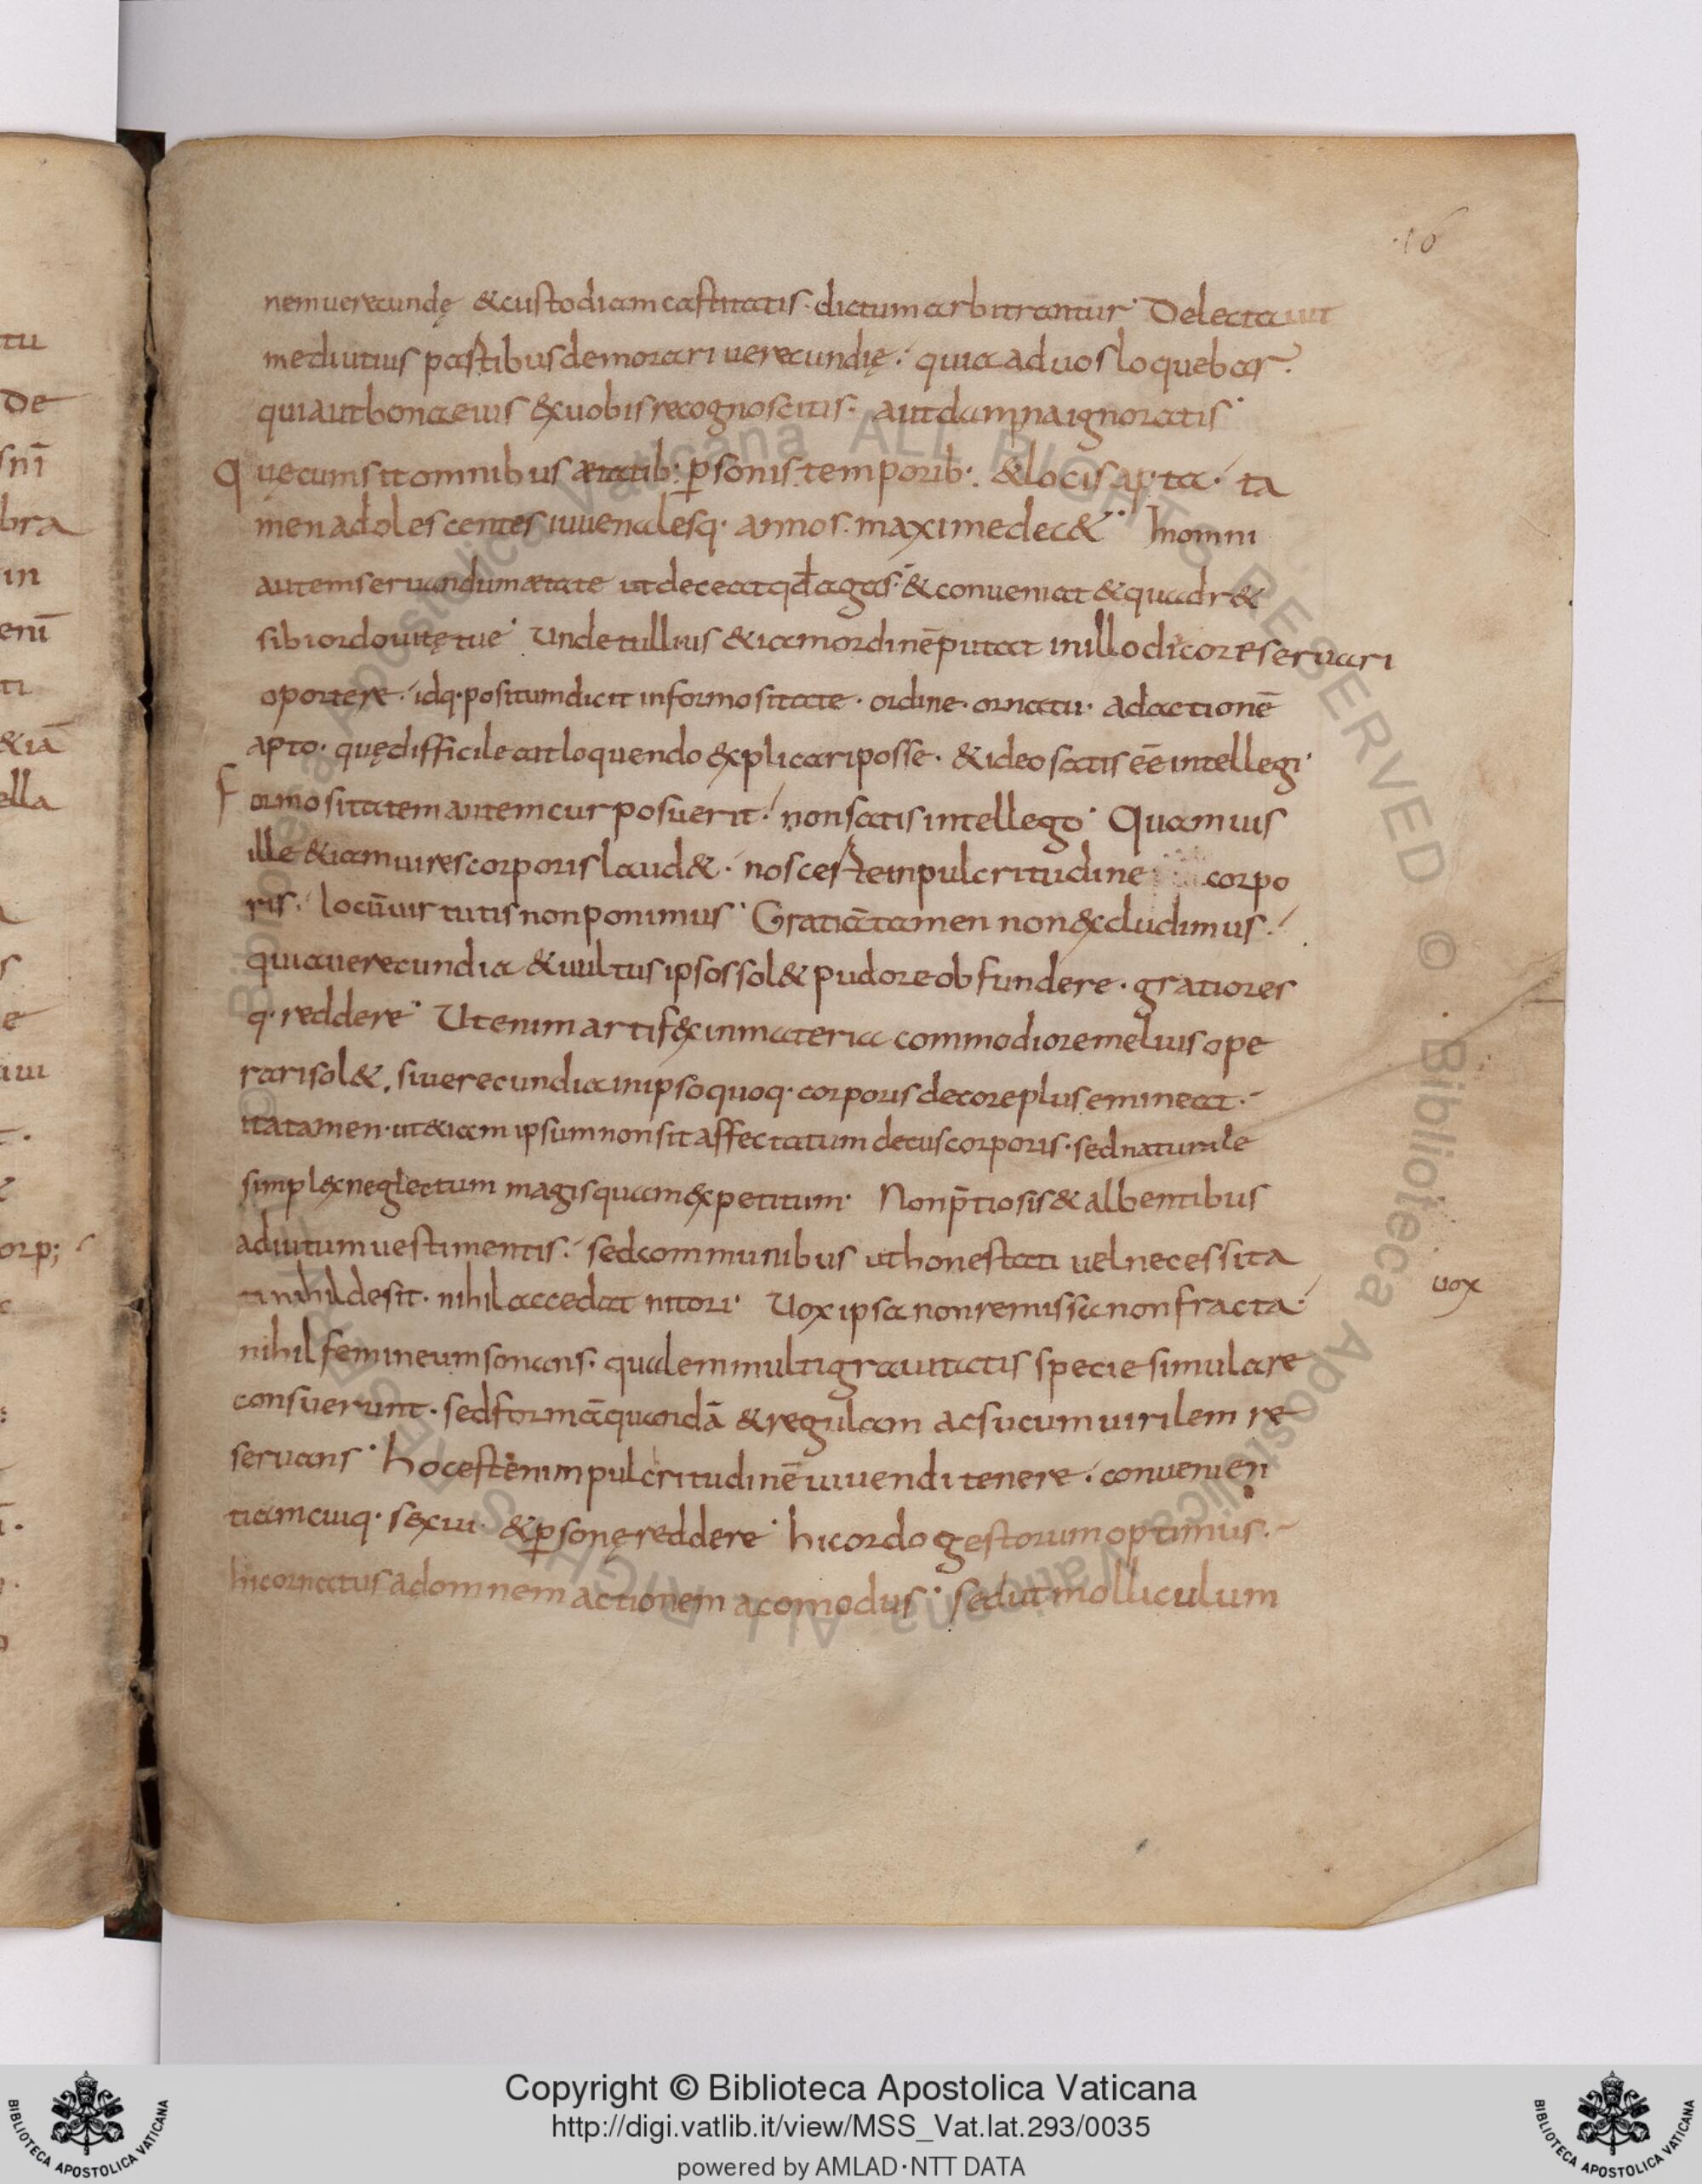 16
nem uerecundę & custodiam castitatis· dictum arbitrantur· Delectauit
me diutius partibus demorari uerecundię· quia ad uos loquebar·
qui aut bona eius ex uobis recognoscitis· aut dampna ignoratis·
Quę cum sit omnibus ætatib: p̱sonis temporib: & locis apta· ta
men adolescentes iuuenalesq· annos· maxime dec&· In omni
autem seruandum ætate ut deceat qđ agas· & conueniat & quadr&
sibi ordo uitę tuę· Unde tullius &iam ordinē putat in illo dicore seruari
oportere· idq· positum dicit in formositate· ordine· ornatu· ad actionē
apto· quę difficile ait loquendo explicari posse· & ideo satis eē intellegi·
Formositatem autem cur posuerit· non satis intellego· Quamuis
ille &iam uires corporis laud&· nos certe in pulcritudine corpo
ris· locū uirtutis non ponimus· Gratiā tamen non excludimus·
quia uerecundia & uultus ipsos sol& pudore obfundere· gratiores
q· reddere· Ut enim artifex in materia commodiore melius ope
rari sol&, si uerecundia in ipso quoq· corporis decore plus emineat·
ita tamen· ut &iam ipsum non sit affectatum decus corporis· sed naturale
simplex neglectum magis quam expetitum· Non p̄tiosis & albentibus
adiutum uestimentis· sed communibus ut honestati uel necessita
ti nihil desit· nihil accedat nitori· Uox ipsa non remissa non fracta·
uox
nihil femineum sonans· qualem multi grauitatis specie simulare
consuerunt· sed formā quandā & regulam ac sucum uirilem re
seruans· hoc est enim pulcritudinē uiuendi tenere· conuenien
tiam cuiq· sexui· & p̱sonę reddere· hic ordo gestorum optimus·
hic ornatus ad omnem actionem acomodus· Sed ut molliculum
Copyright © Biblioteca Apostolica Vaticana
http://digi.vatlib.it/view/MSS_Vat.lat.293/0035
powered by AMLAD·NTT DATA